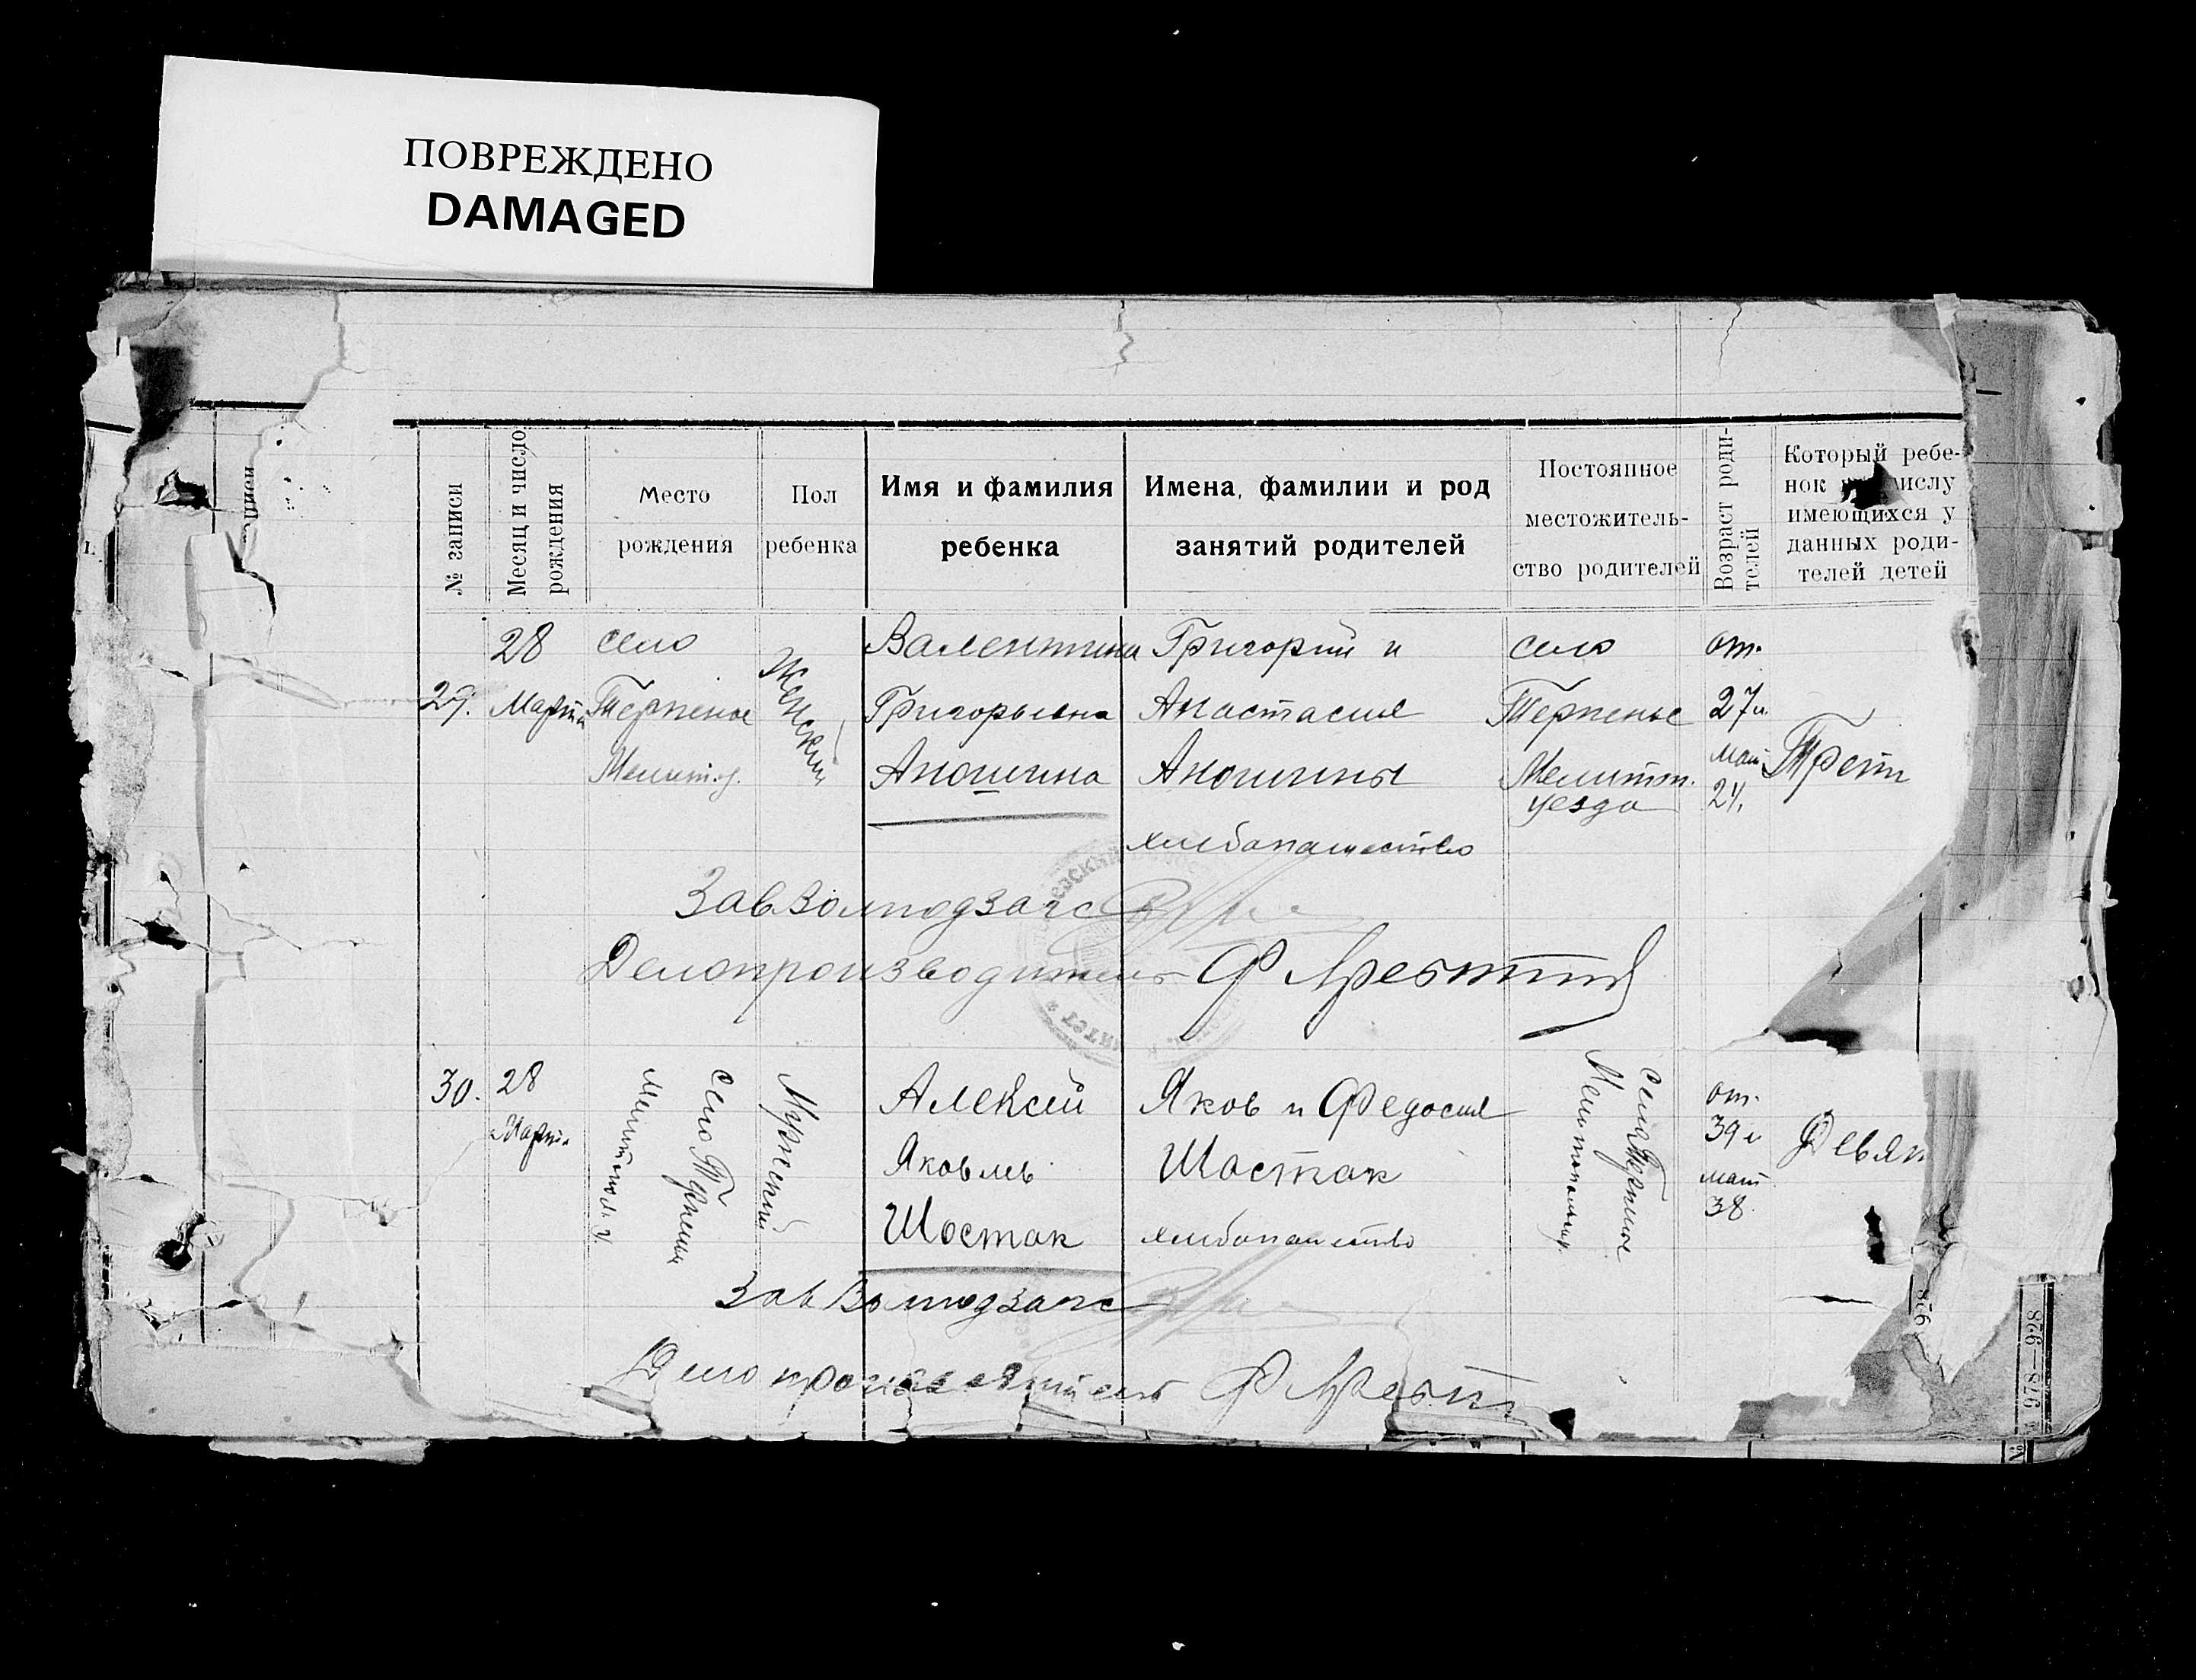 ПОВРЕЖДЕНО
DAMAGED
№ записи
Месяц и число рождения
Место рождения
Пол ребенка
Имя и фамилия ребенка
Имена, фамилии и род занятий родителей
Постоянное местожитель-
ство родителей
Возраст роди-
телей
Который ребе-
нок числу
имеющихся у
данных роди-
телей детей
29.
28
Марта
село
Терпение
Мелит. у.
Женский
Валентина
Григорьевна
Аношина
Григорий и
Анастасия
Аношины
хлебопашество
село
Терпенье
Мелитоп.
уезда
от.
27 и
мат
24.
Трет
Зав Волподзагс
Делопроизводитель
30.
28
Марта
село Терпения
Мелитопол. у.
Мужской
Алексей
Яковлев
Шостак
Яков и Федосия
Шостак
хлебопашество
село Терпение
от.
39 и
мат
38.
Девят
Зав Волподзагс
Делопроизводитель
928
978—928